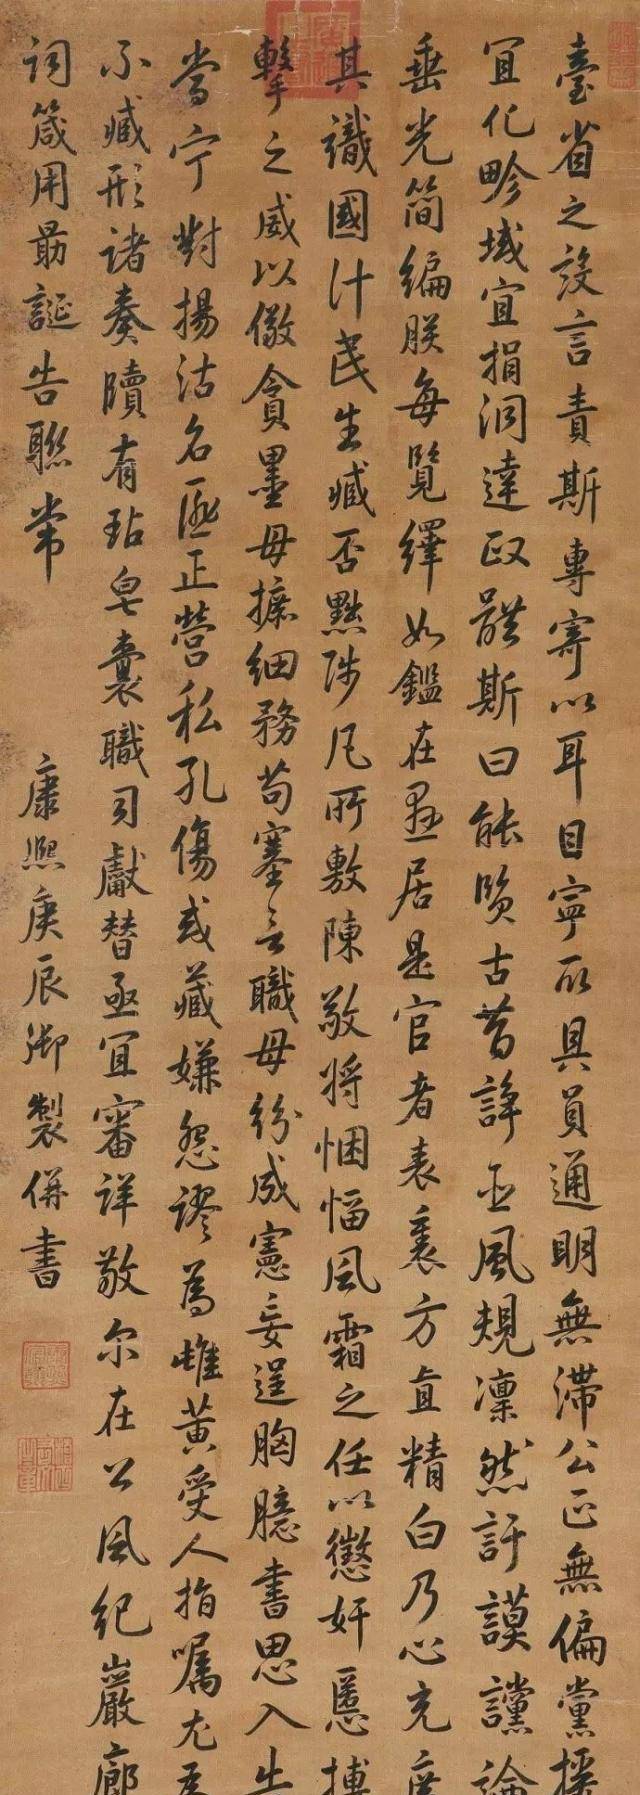 臺省之設言責斯專寄以耳目寧取具員通明無滯公正無偏黨援
宜化畛域宜捐洞達政體斯曰能賢古昔諍臣風規凜然訏謨讜論
垂光簡編朕每覽繹如鑑在懸居是官者表裏方直精白乃心充
其識國計民生臧否黜陟凡所敷陳敬將悃愊風霜之任以懲奸慝搏
擊之威以儆貪墨毋摭細務苟塞言職毋紛成憲妄逞胸臆書思入
當宁對揚沽名匪正營私孔傷或藏嫌怨謬為雌黃受人指囑尤
不臧形諸奏牘有玷皂囊職司獻替亟宜審詳敬尔在公風紀巖廊
詞箴用勗誕告聯常
康熙庚辰御製併書